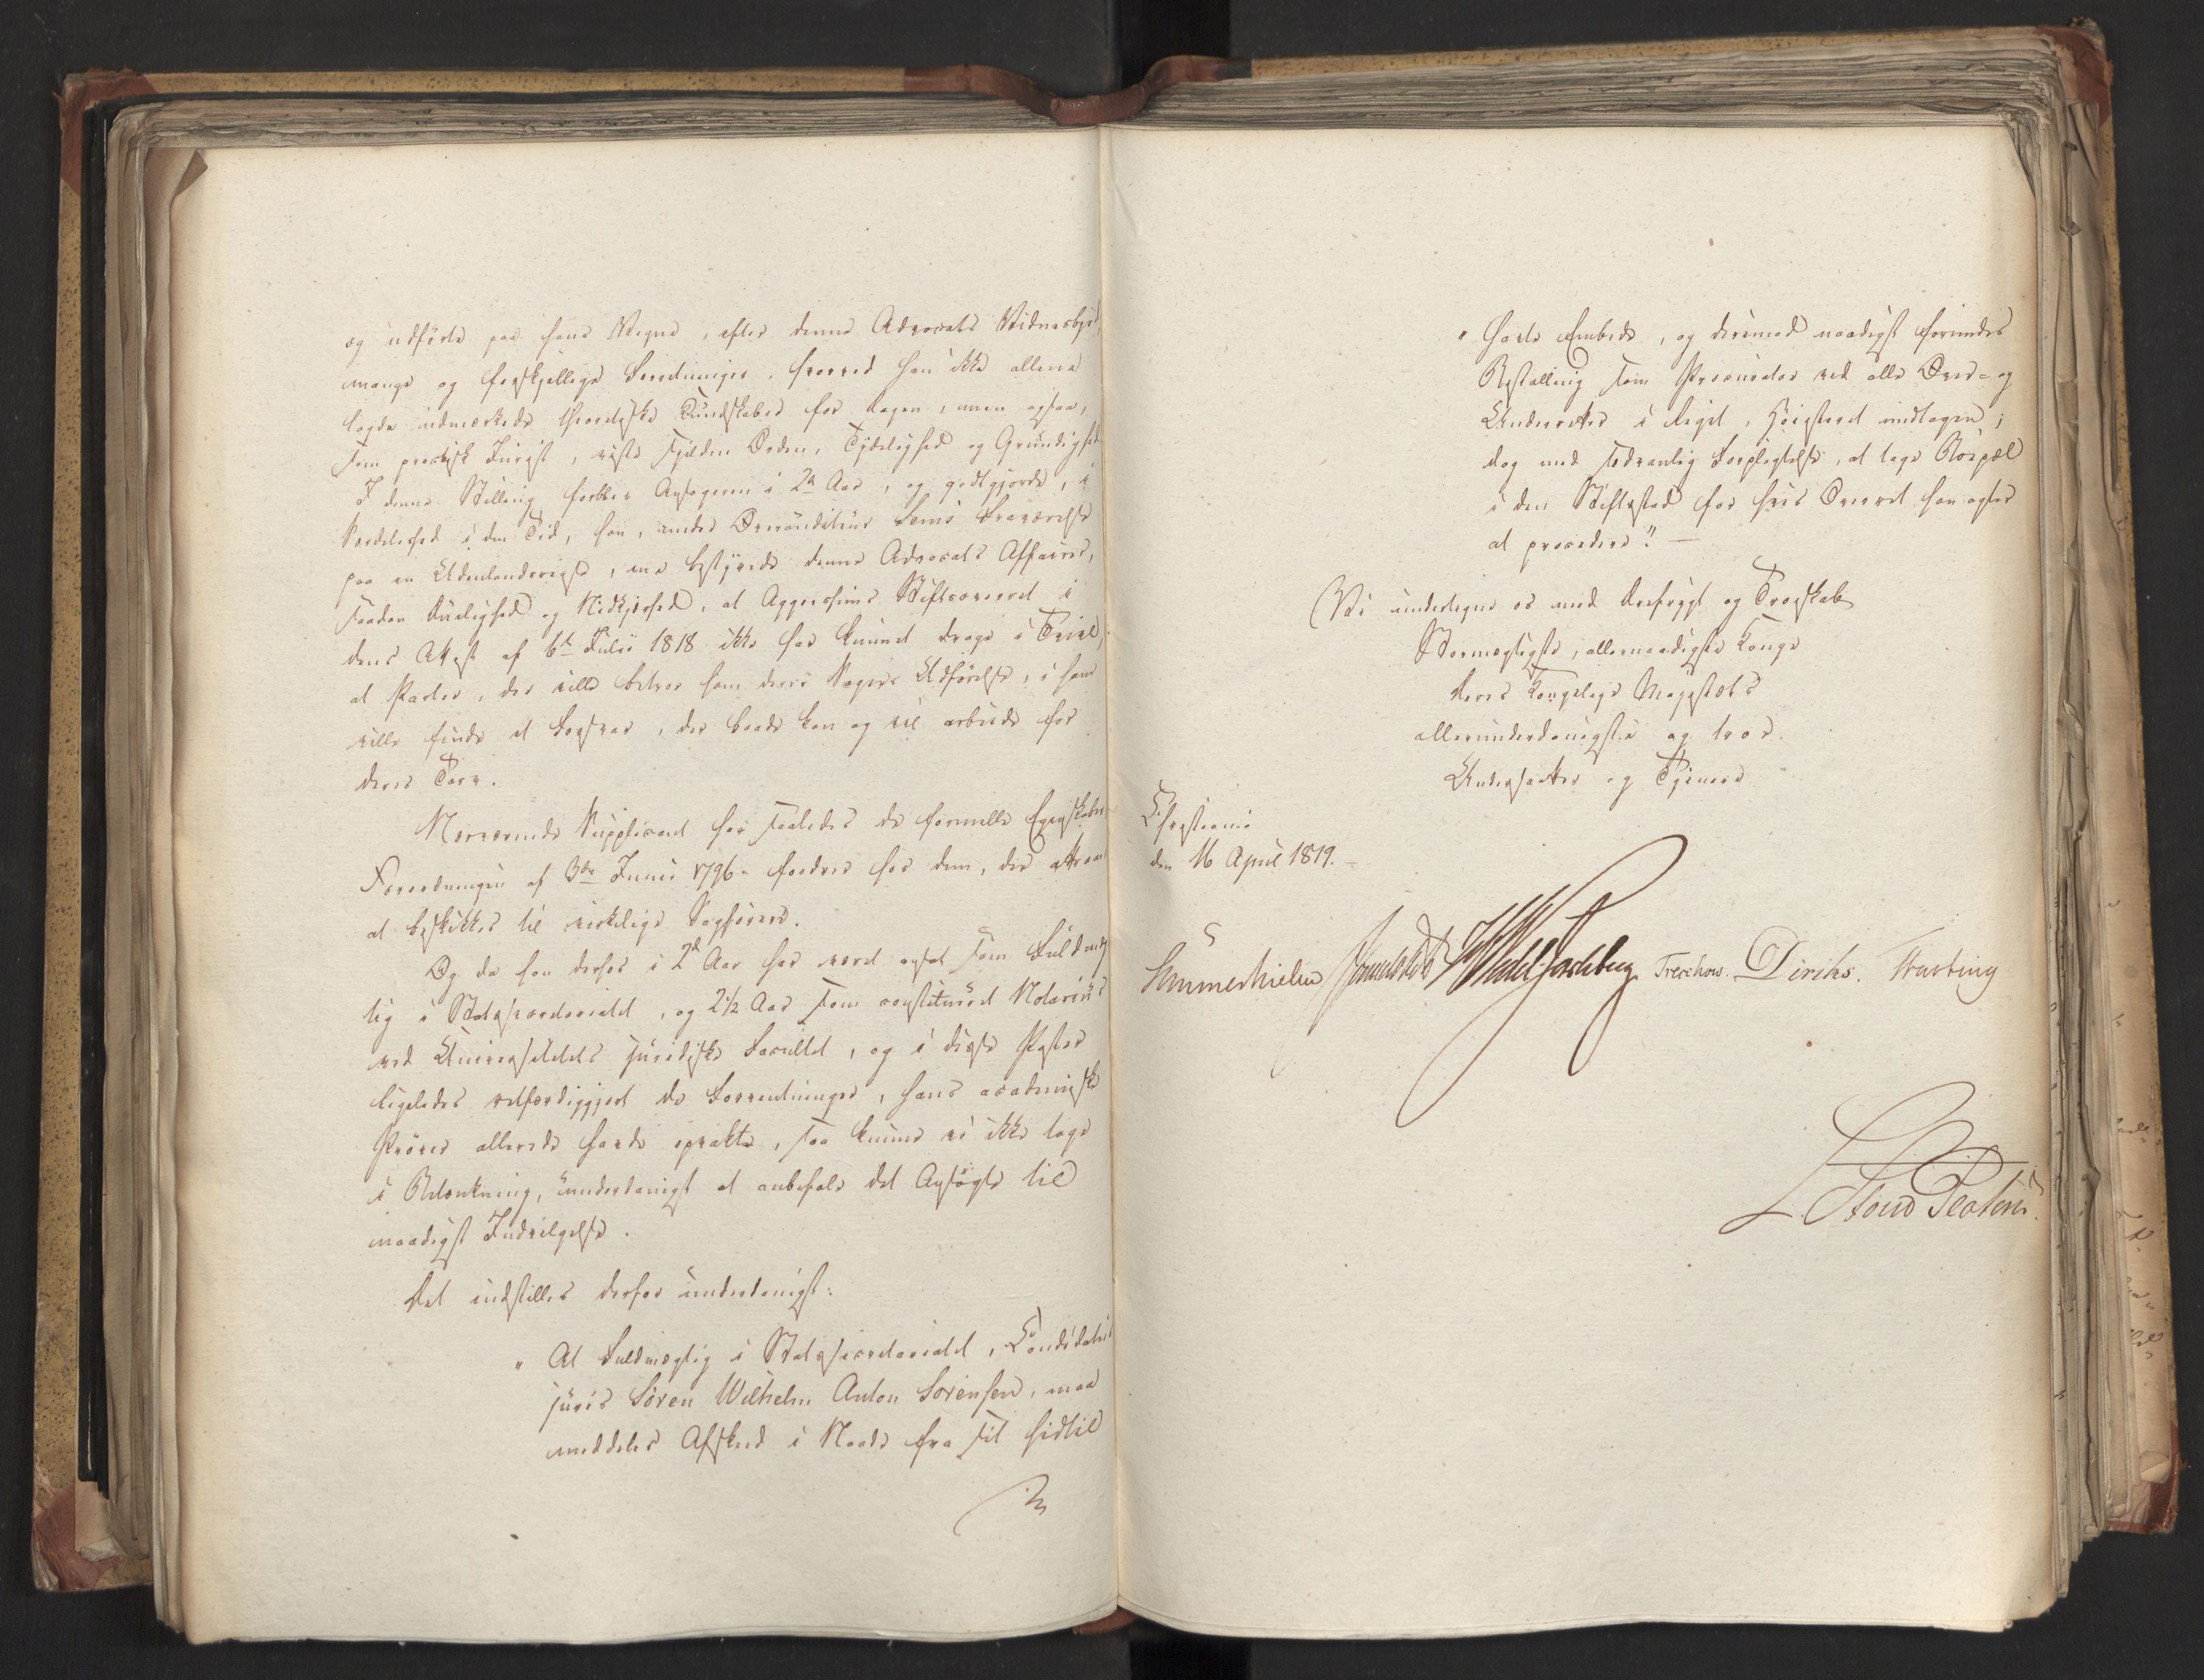 og udførte paa hans Vegne, efter denne Advocats Vidnesbyrd,
mange og forskjellige Forretninger, hvorved han ikke allene
lagde udmærkede theoretiske Kundskaber for Dagen, men ogsaa,
som practisk Jurist, viste sjelden Orden, Tydelighed og Grundighed
I denne Stilling forblev Ansøgeren i 2 Aar, og godtgjorde, i
Særdeleshed i den Tid, han, under Overauditeur Fraværelse
paa en Udenlandsreise, ene bestyrede denne Advocats Affairer,
saadan Duelighed og Nidkjerhed, at Aggershuus Stiftsoverret i
dens Attest af 6te Julii 1818 ikke har kunnet drage i Tvivl,
at Parter, der ville betroe ham deres Sagers Udførelse, i ham
ville finde et Forsvar, der baade kan og vil arbeide for
deres Tarv.
Nærværende Supplicant har saaledes de formelle Egenskaber
Forordningen af 3die Junii 1796 fordrer hos dem, der attraae
at beskikkes til virkelige Sagførere.
Og da han derhos i 2 Aar har været ansat som Fuldmæg
tig i Statssecretariatet, og 2 1/2 Aar som constitueret Notarius
ved Universitetets juridiske Facultet, og i disse Poster
ligeledes retfærdiggjort de Forventninger, hans academiske
Prøver allerede havde opvakte, saa kunne vi ikke tage
i Betænkning, underdanigst at anbefale det Ansøgte til
naadigst Indvilgelse.
Det indstilles derfor underdanigst:
" At Fuldmægtig i Statssecretariatet, Candidatus
juris Søren Wilhelm Anton Sørensen, maa
meddeles Afsked i Naade fra sit hidtil
" havte Embede, og derimod naadigst forundes
Bestalling som Procurator ved alle Over- og
Underretter i Riget, Høiesteret undtagen;
dog med sædvanlig Forpligtelse, at tage Bopæl
i den Stiftsstad for hvis Overret han agter
at procedere". —
Vi undertegne os med Ærefrygt og Troeskab
Stormægtigste, allernaadigste Konge
Deres Kongelige Majestæts
allerunderdanigste og troe
Undersaatter og Tjenere
Christiania
den 16 April 1819. —
Sommerhielm Wedel Jarlsberg Treschow. Diriks. Fasting
L. Stoud Platou.